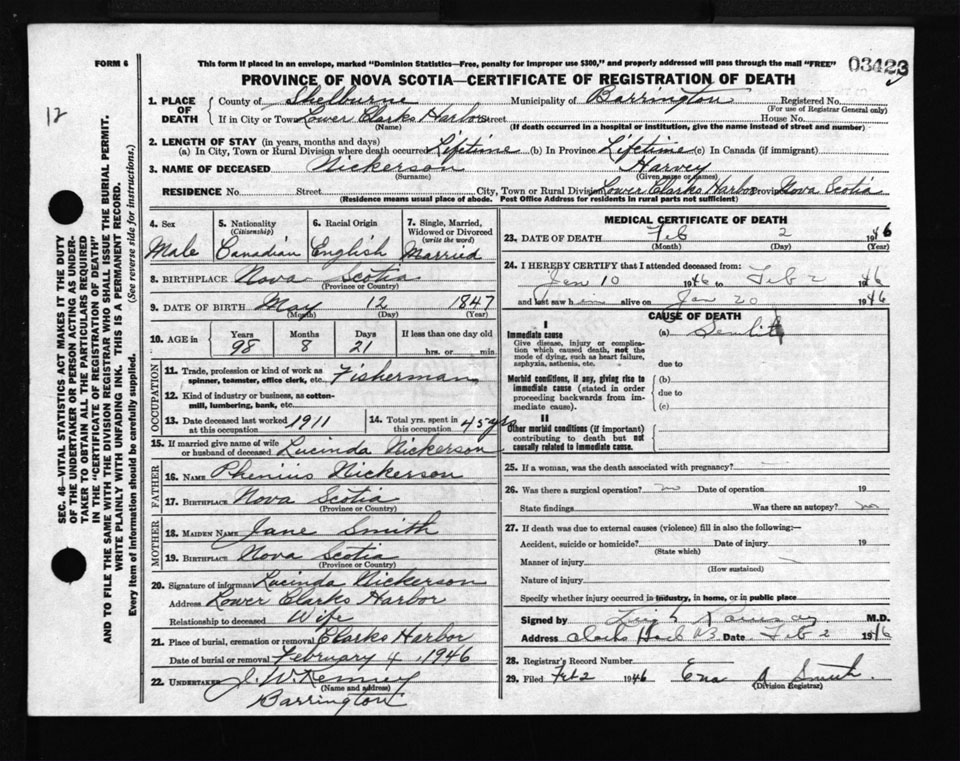 FORM 6
This form if placed in an envelope, marked "Dominion Statistics—Free, penalty for improper use $300," and properly addressed will pass through the mail "FREE"
03423
PROVINCE OF NOVA SCOTIA—CERTIFICATE OF REGISTRATION OF DEATH
12
1. PLACE OF DEATH
County of Shelburne Municipality of Barrington Registered No.
(For use of Registrar General only)
If in City or Town Lower Clarks Harbor Street House No.
(Name) (If death occurred in a hospital or institution, give the name instead of street and number)
2. LENGTH OF STAY (in years, months and days)
(a) In City, Town or Rural Division where death occurred Lifetime (b) In Province Lifetime (c) In Canada (if immigrant)
3. NAME OF DECEASED Nickerson Harvey
(Surname) (Given name or names)
RESIDENCE No. Street City, Town or Rural Division Lower Clarks Harbor Province Nova Scotia
(Residence means usual place of abode. Post Office Address for residents in rural parts not sufficient)
4. Sex
Male
5. Nationality
(Citizenship)
Canadian
6. Racial Origin
English
7. Single, Married, Widowed or Divorced
(write the word)
Married
8. BIRTHPLACE Nova Scotia
(Province or Country)
9. DATE OF BIRTH May 12 1847
(Month) (Day) (Year)
10. AGE in
Years Months Days If less than one day old
98 8 21 hrs. or min.
OCCUPATION
11. Trade, profession or kind of work as
spinner, teamster, office clerk, etc. Fisherman
12. Kind of industry or business, as cotton-
mill, lumbering, bank, etc.
13. Date deceased last worked at this occupation 1911
14. Total yrs. spent in this occupation 45 yrs
15. If married give name of wife
or husband of deceased Lucinda Nickerson
FATHER
16. NAME Phenius Nickerson
17. BIRTHPLACE Nova Scotia
(Province or Country)
MOTHER
18. MAIDEN NAME Jane Smith
19. BIRTHPLACE Nova Scotia
(Province or Country)
20. Signature of informant Lucinda Nickerson
Address Lower Clarks Harbor
Relationship to deceased Wife
21. Place of burial, cremation or removal Clarks Harbor
Date of burial or removal February 4, 1946
22. UNDERTAKER J. W Kenney
(Name and address)
Barrington
MEDICAL CERTIFICATE OF DEATH
23. DATE OF DEATH Feb 2 1946
(Month) (Day) (Year)
24. I HEREBY CERTIFY that I attended deceased from:
Jan 10 1946 to Feb 2 1946
and last saw him alive on Jan 20 1946
CAUSE OF DEATH
I
Immediate cause
Give disease, injury or complica-
tion which caused death, not the
mode of dying, such as heart failure,
asphyxia, asthenia, etc.
(a) Senility
due to
Morbid conditions, if any, giving rise to
immediate cause (stated in order
proceeding backwards from im-
mediate cause).
(b)
due to
(c)
II
Other morbid conditions (if important)
contributing to death but not
causally related to immediate cause.
25. If a woman, was the death associated with pregnancy?
26. Was there a surgical operation? no Date of operation 19
State findings Was there an autopsy? no
27. If death was due to external causes (violence) fill in also the following:—
Accident, suicide or homicide? Date of injury 19
(State which)
Manner of injury
(How sustained)
Nature of injury
Specify whether injury occurred in industry, in home, or in public place
Signed by M.D.
Address Clarks Date Feb 2 1946
28. Registrar's Record Number
29. Filed Feb 2 1946 Ena A Smith
(Division Registrar)
SEC. 46—VITAL STATISTICS ACT MAKES IT THE DUTY
OF THE UNDERTAKER OR PERSON ACTING AS UNDER-
TAKER TO OBTAIN ALL THE PARTICULARS REQUIRED
IN THE "CERTIFICATE OF REGISTRATION OF DEATH"
AND TO FILE THE SAME WITH THE DIVISION REGISTRAR WHO SHALL ISSUE THE BURIAL PERMIT.
WRITE PLAINLY WITH UNFADING INK. THIS IS A PERMANENT RECORD.
Every item of information should be carefully supplied. (See reverse side for instructions.)